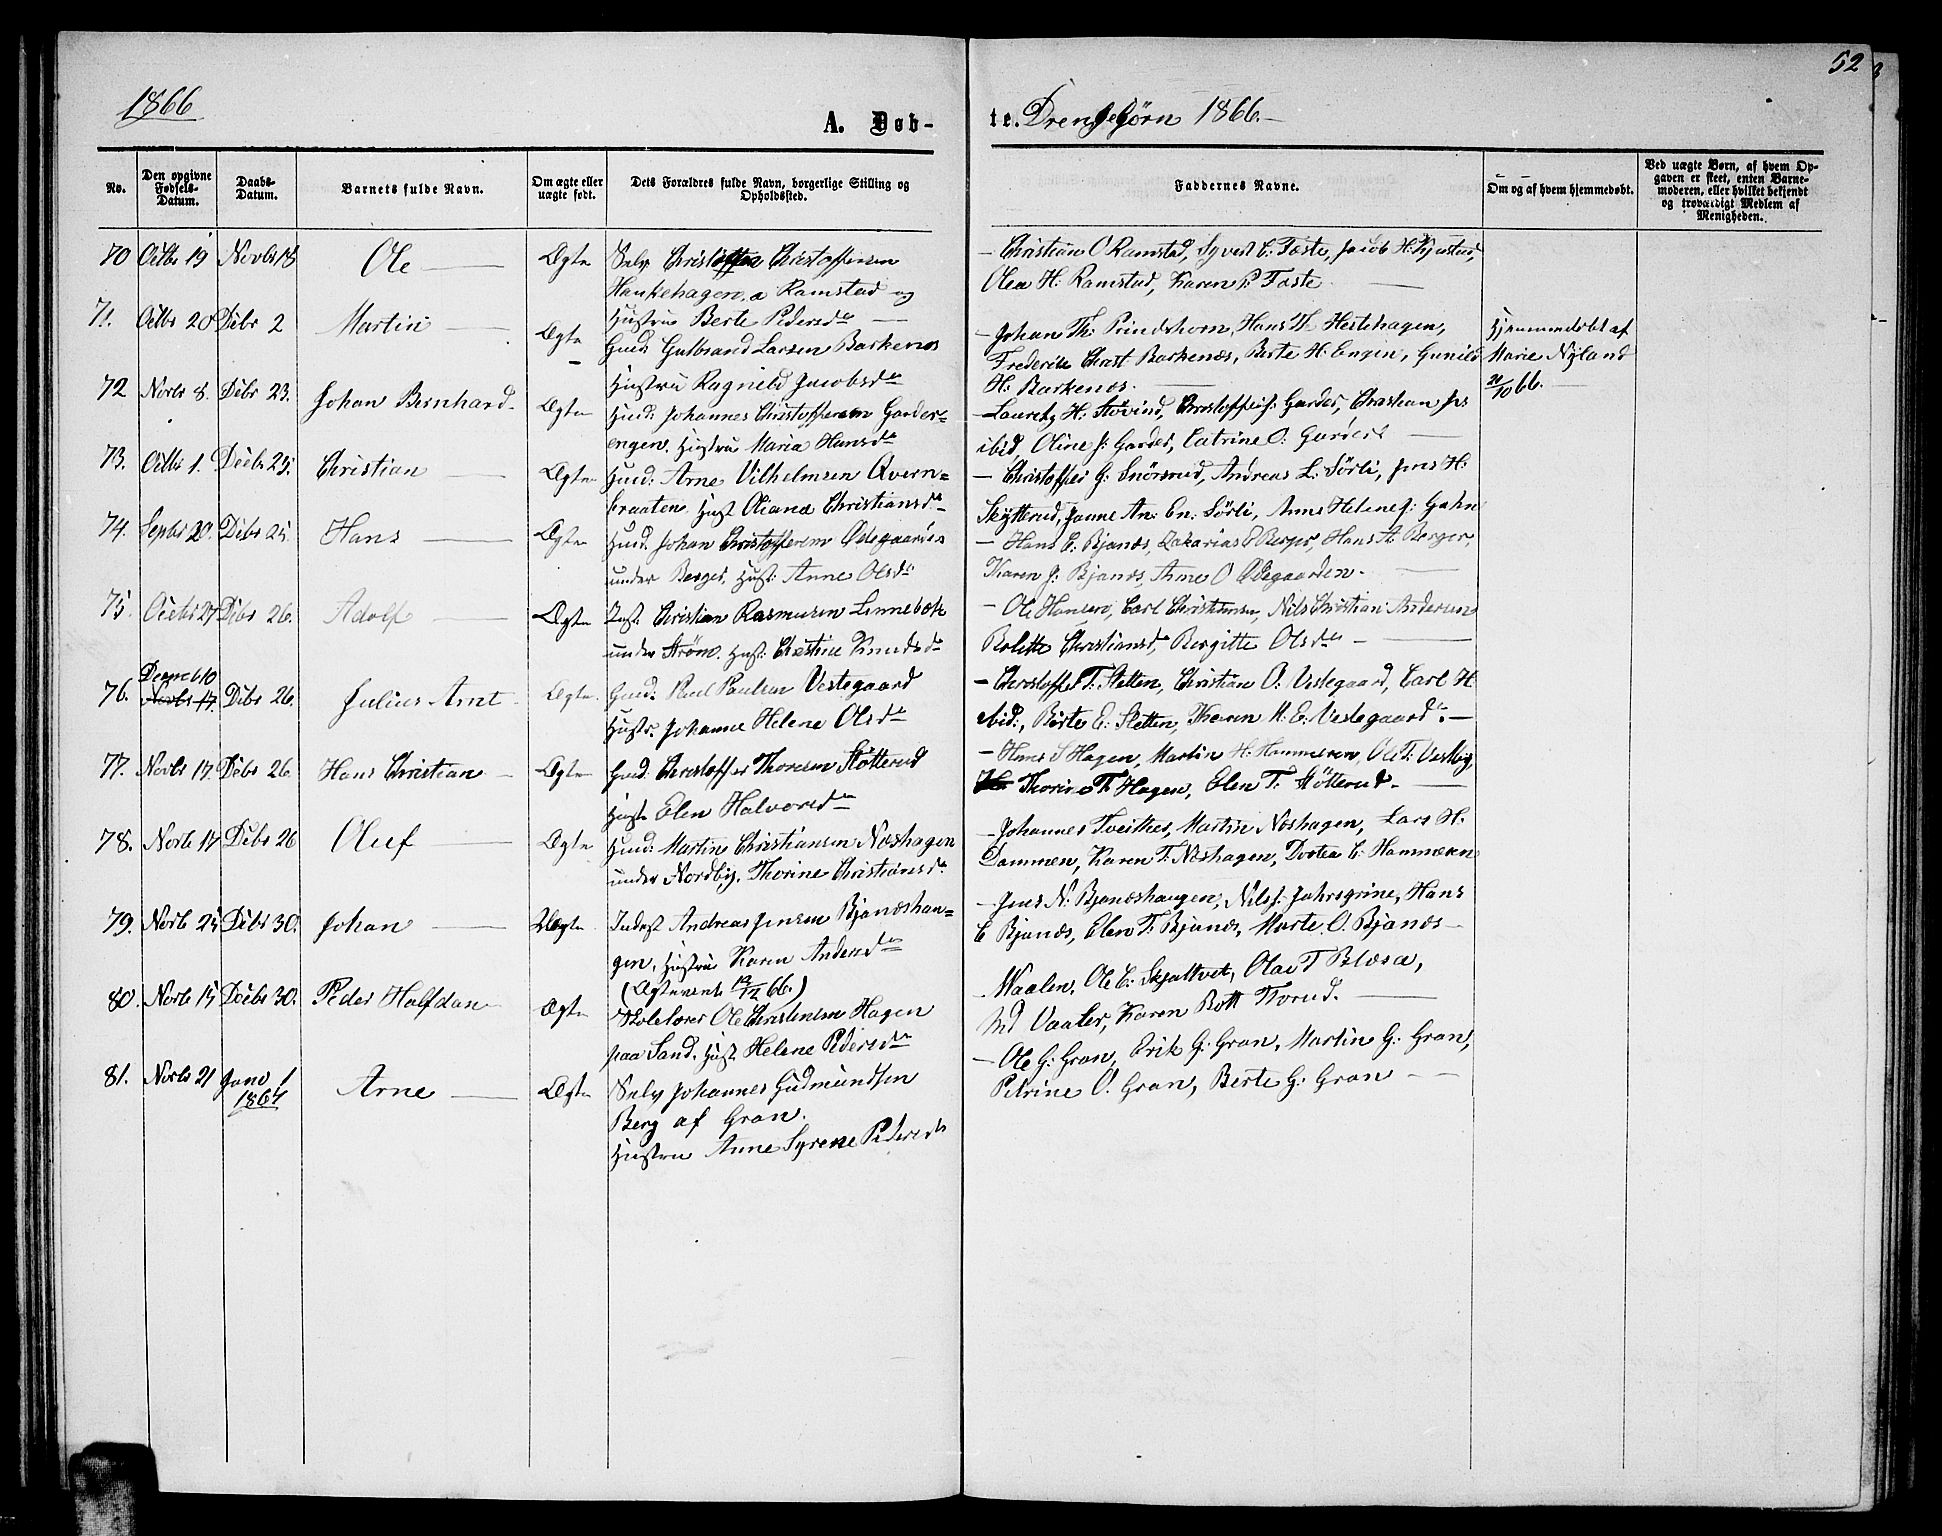 52
1866
A. Døb-
te. Drengebørn 1866.
No.
Den opgivne Fødsels-Datum.
Daabs-Datum.
Barnets fulde Navn.
Om ægte eller uægte født.
Dets Forældres fulde Navn, borgerlige Stilling og Opholdssted.
Faddernes Navne.
Om og af hvem hjemmedøbt.
Ved uægte Børn, af hvem Opgaven er skeet, enten Barnemoderen, eller hvilket bekjendt og troværdigt Medlem af Menigheden.
70 Octbr 19 Novbr 18 Ole Ægte
Selv Christoffer Christoffersen
Haukehagen a Ramstad og
Hustru Berte Pedersdr
Christian O Ramstad, Syvert C. Faste, Jacob H.
Olea H. Ramstad, Karen P. Faste
71. Octbr 20 Debr 2 Martin Ægte
Huusm Gulbrand Larsen Barkenæs
Hustru Ragnild Jacobsdr
Johan Th: Prindshorn, Hans Hestehagen,
Frederik Christ Barkenæs, Berte H. Engen, Gunild
H: Barkenæs.
Hjemmedøbt af
Marie Nyland
20/10 66.
72 Novbr 8. Debr 23. Johan Bernhard Ægte
Huusm: Johannes Christoffersen Garder-
engen. Hustru Maria Hansdr
Lauritz H. Støvind, Christoffer J: Garder, Christian Js:
ibid, Oline J: Garder, Catrine O: Garder
73. Octbr 1. Decbr 25. Christian Ægte
Huusm: Arne Vilhelmsen Qvern-
braaten. Hust Oliana Christiansdr
Christoffer G: Snørsrud, Andreas L. Sörli, Jens H:
Skytterud, Janne An: En: Sörli, Anne Helene J: Hahn
74. Septbr 20. Debr 25 Hans Ægte
Huusm: Johan Christoffersen Ødegaarden
under Berger, Hust: Anne Olsdr
Hans E. Bjanæs, Zakarias Berger, Hans A. Berger,
Karen J: Bjanæs, Anne O Ødegaarden.
75. Octbr 27 Debr 26. Adolf Ægte
Inst: Christian Rasmusen Linnebæk
under Strøm. Hust: Christine Knudsdr
Ole Hansen, Carl Christiansen, Nils Christian Andersen
Bolette Christiansdr, Birgitte Olsdr
76. Decmbr 10 Novbr 17. Debr 26. Julius Arnt Ægte
Huusm: Paul Paulsen Vestegaard
Hustr. Johanne Helene Olsdr
Christoffer T. Sletten, Christian O. Vestegaard, Carl H
ibid:, Berte E. Sletten, Karen M. E. Vestegaard.
77. Novbr 17. Debr 26. Hans Christian Ægte
Huusm: Christoffer Thoresen Støtterud
Hust Elen Halvorsdr
Hans S Hagen, Martin H. Hammeren, Ole T. Vestby,
Thorine T. Hagen, Elen T. Støtterud.
78. Novbr 17 Debr 26 Oluf Ægte
Huusm: Martin Christiansen Næshagen
under Nordby, Thorine Christiansdr
Johannes Tveither, Martin Næshagen, Lars H.
Dammen, Karen T: Næshagen, Dortea C: Hammeren
79. Novbr 25 Debr 30. Johan Uægte
Inderst Andreas Jensen Bjanæshau-
gen, Hustru Karen Andersdr
(Ægteviede 12/12 66.)
Jens N: Bjanæshaugen, Nils J. Jahrsgrine, Hans
E Bjanæs, Elen T. Bjanæs, Marte O. Bjanæs
80. Novbr 15 Decbr 30. Peder Halfdan Ægte
Skolelærer Ole Christensen Hagen
paa Sand, Hust Helene Pedersdr
Waalen, Ole C: Skjattvet, Olav T Blæsa,
Vaaler, Karen Bott Thorud.
81. Novbr 21 Janv 1
1867 Arne Ægte
Selv Johannes Gudmundsen
Berg af Gran.
Hustru Anne Syrene Pedersdr
Ole G: Gran, Erik G: Gran, Martin G: Gran,
Petrine O. Gran, Berte G: Gran